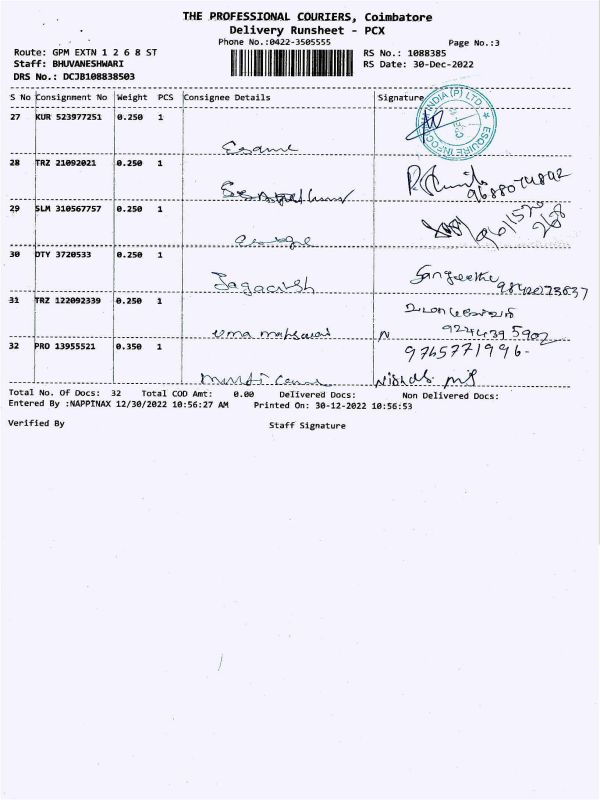 THE PROFESSIONAL COURIERS, Coimbatore
Delivery Runsheet - PCX
Phone No.:0422-3505555
Page No.:3
Route: GPM EXTN 1 2 6 8 ST
RS No.: 1088385
Staff: BHUVANESHWARI
RS Date: 30-Dec-2022
DRS No.: DCJB108838503
S No Consignment No Weight PCS Consignee Details Signature
27 KUR 523977251 0.250 1
INDIA (P) LTD. ★ ESQUIRE INFOC
28 TRZ 21092021 0.250 1
9688074842
29 SLM 310567757 0.250 1
30 DTY 3720533 0.250 1
Sangeetha
9842073637
31 TRZ 122092339 0.250 1
உமாமகேஸ்வரி
uma mahswari N 9244395902
32 PRO 13955521 0.350 1
9765771996-
Total No. Of Docs: 32 Total COD Amt: 0.00 Delivered Docs: Non Delivered Docs:
Entered By :NAPPINAX 12/30/2022 10:56:27 AM Printed On: 30-12-2022 10:56:53
Verified By
Staff Signature